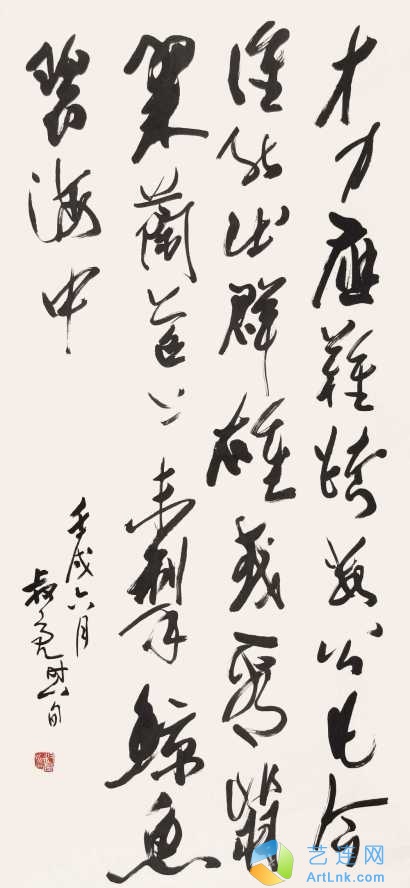 才力應難跨數公凡今
誰能出群雄或看翡
翠蘭苕上未掣鯨魚
碧海中
壬戌六月
叔亮時八旬
艺连网
ArtLnk.com